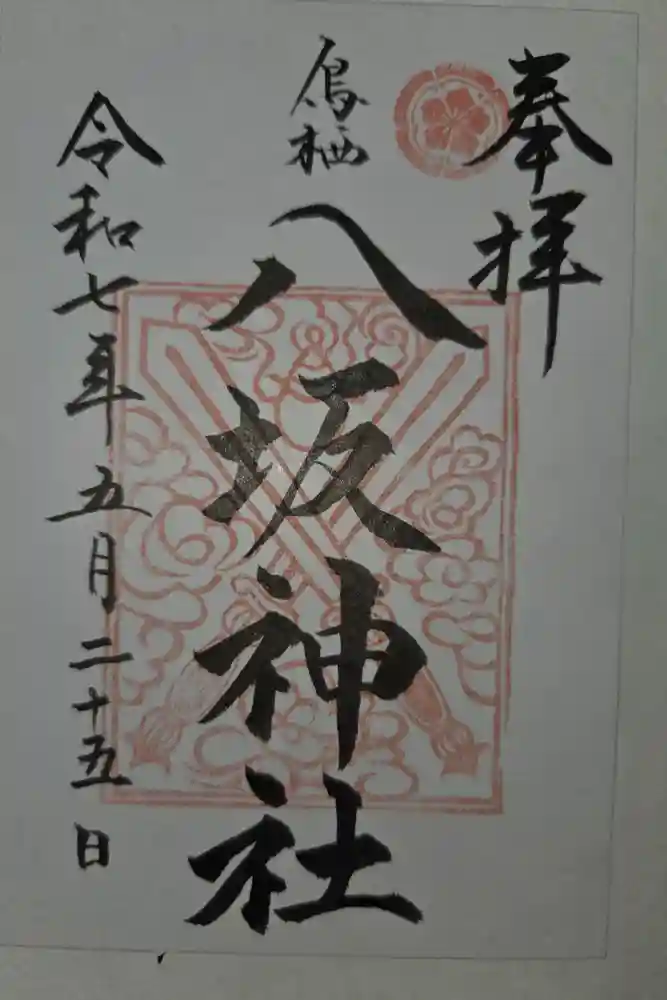 奉拝
鳥栖
八坂神社
令和七年五月二十五日